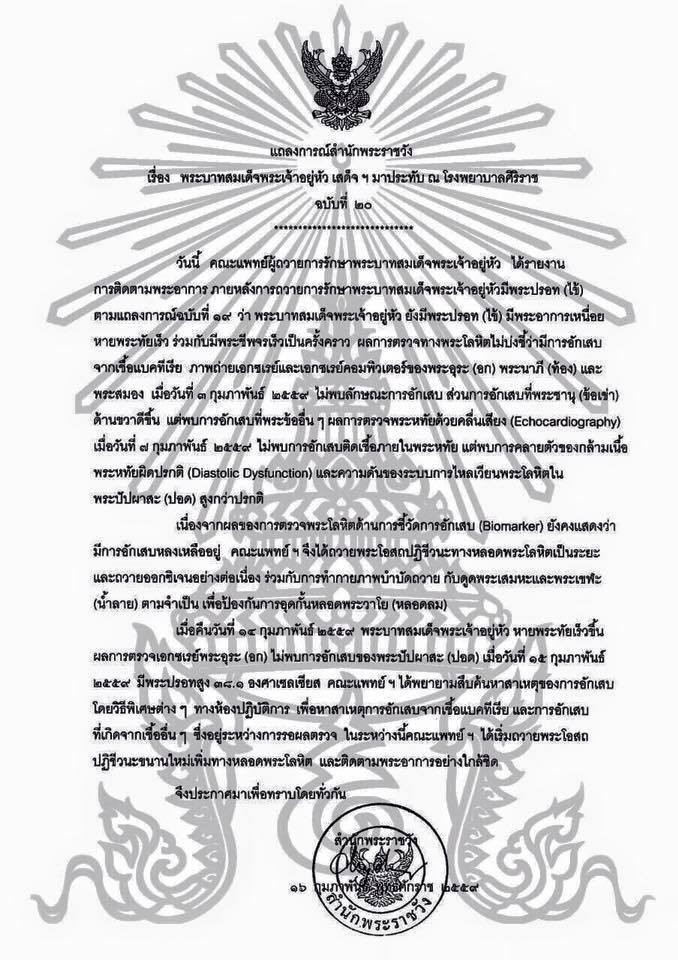 แถลงการณ์สำนักพระราชวัง
เรื่อง พระบาทสมเด็จพระเจ้าอยู่หัว เสด็จ ฯ มาประทับ ณ โรงพยาบาลศิริราช
ฉบับที่ ๒๐
*****************************
วันนี้ คณะแพทย์ผู้ถวายการรักษาพระบาทสมเด็จพระเจ้าอยู่หัว ได้รายงาน
การติดตามพระอาการ ภายหลังการถวายการรักษาพระบาทสมเด็จพระเจ้าอยู่หัวมีพระปรอท (ไข้)
ตามแถลงการณ์ฉบับที่ ๑๙ ว่า พระบาทสมเด็จพระเจ้าอยู่หัว ยังมีพระปรอท (ไข้) มีพระอาการเหนื่อย
หายพระทัยเร็ว ร่วมกับมีพระชีพจรเร็วเป็นครั้งคราว ผลการตรวจทางพระโลหิตไม่บ่งชี้ว่ามีการอักเสบ
จากเชื้อแบคทีเรีย ภาพถ่ายเอกซเรย์และเอกซเรย์คอมพิวเตอร์ของพระอุระ (อก) พระนาภี (ท้อง) และ
พระสมอง เมื่อวันที่ ๓ กุมภาพันธ์ ๒๕๕๙ ไม่พบลักษณะการอักเสบ ส่วนการอักเสบที่พระชานุ (ข้อเข่า)
ด้านขวาดีขึ้น แต่พบการอักเสบที่พระข้ออื่น ๆ ผลการตรวจพระหทัยด้วยคลื่นเสียง (Echocardiography)
เมื่อวันที่ ๗ กุมภาพันธ์ ๒๕๕๙ ไม่พบการอักเสบติดเชื้อภายในพระหทัย แต่พบการคลายตัวของกล้ามเนื้อ
พระหทัยผิดปรกติ (Diastolic Dysfunction) และความดันของระบบการไหลเวียนพระโลหิตใน
พระปัปผาสะ (ปอด) สูงกว่าปรกติ
เนื่องจากผลของการตรวจพระโลหิตด้านการชี้วัดการอักเสบ (Biomarker) ยังคงแสดงว่า
มีการอักเสบหลงเหลืออยู่ คณะแพทย์ ฯ จึงได้ถวายพระโอสถปฏิชีวนะทางหลอดพระโลหิตเป็นระยะ
และถวายออกซิเจนอย่างต่อเนื่อง ร่วมกับการทำกายภาพบำบัดถวาย กับดูดพระเสมหะและพระเขฬะ
(น้ำลาย) ตามจำเป็น เพื่อป้องกันการอุดกั้นหลอดพระวาโย (หลอดลม)
เมื่อคืนวันที่ ๑๔ กุมภาพันธ์ ๒๕๕๙ พระบาทสมเด็จพระเจ้าอยู่หัว หายพระทัยเร็วขึ้น
ผลการตรวจเอกซเรย์พระอุระ (อก) ไม่พบการอักเสบของพระปัปผาสะ (ปอด) เมื่อวันที่ ๑๕ กุมภาพันธ์
๒๕๕๙ มีพระปรอทสูง ๓๘.๑ องศาเซลเซียส คณะแพทย์ ฯ ได้พยายามสืบค้นหาสาเหตุของการอักเสบ
โดยวิธีพิเศษต่าง ๆ ทางห้องปฏิบัติการ เพื่อหาสาเหตุการอักเสบจากเชื้อแบคทีเรีย และการอักเสบ
ที่เกิดจากเชื้ออื่น ๆ ซึ่งอยู่ระหว่างการรอผลตรวจ ในระหว่างนี้คณะแพทย์ ฯ ได้เริ่มถวายพระโอสถ
ปฏิชีวนะขนานใหม่เพิ่มทางหลอดพระโลหิต และติดตามพระอาการอย่างใกล้ชิด
จึงประกาศมาเพื่อทราบโดยทั่วกัน
สำนักพระราชวัง
๑๖ กุมภาพันธ์ พุทธศักราช ๒๕๕๙
สำนักพระราชวัง